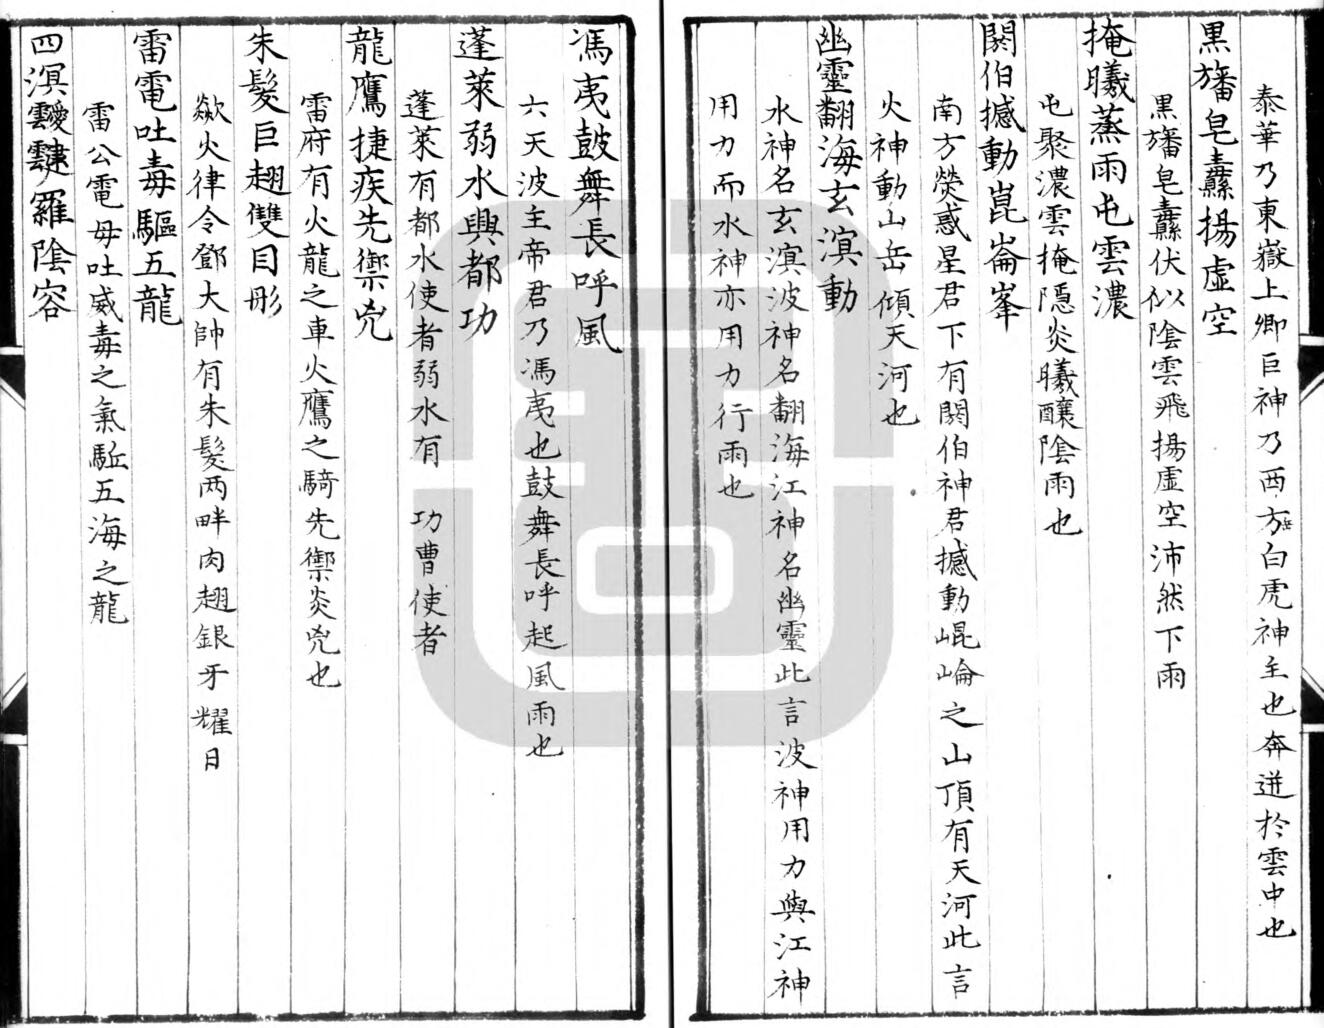 泰華乃東嶽上卿巨神乃西方白虎神主也奔迸於雲中也
黑旛皂纛揚虛空
黑旛皂纛伏似陰雲飛揚虛空沛然下雨
掩曦蒸雨屯雲濃
屯聚濃雲掩隱炎曦釀陰雨也
閼伯撼動崑崙峯
南方熒惑星君下有閼伯神君撼動崐崘之山頂有天河此言
火神動山岳傾天河也
幽靈翻海玄溟動
水神名玄溟波神名翻海江神名幽靈此言波神用力與江神
用力而水神亦用力行雨也
馮夷鼓舞長呼風
六天波主帝君乃馮夷也鼓舞長呼起風雨也
蓬萊弱水興都功
蓬萊有都水使者弱水有 功曹使者
龍鷹捷疾先禦兇
雷府有火龍之車火鷹之騎先禦炎兇也
朱髮巨翅雙目彤
歘火律令鄧大帥有朱髮两畔肉翅銀牙耀日
雷電吐毒驅五龍
雷公電母吐威毒之氣駈五海之龍
四溟靉靆羅陰容